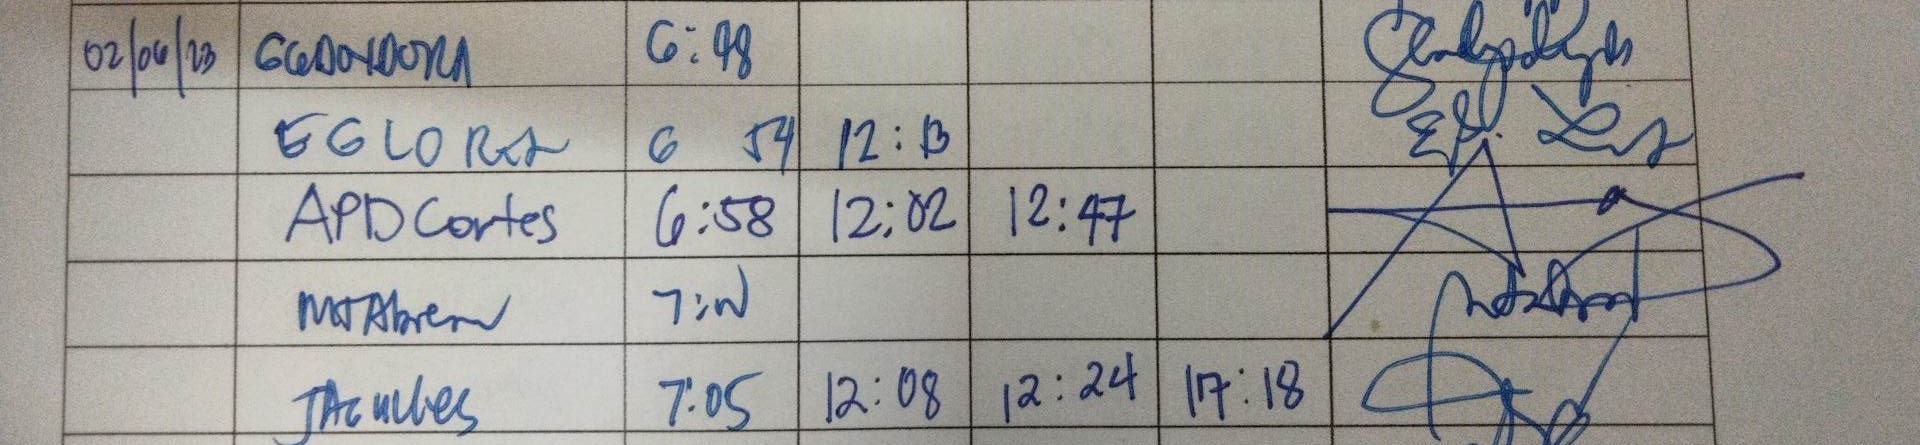 02/06/23 GGDONDORA 6:48
EGLORES 6 54 12:13
APDCortes 6:58 12:02 12:47
MTAbreu
JACulles 7:05 12:08 12:24 17:18